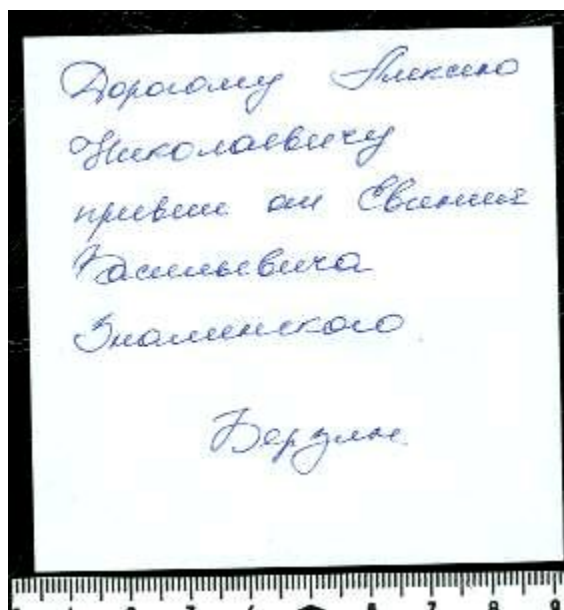 Дорогому Алексею
Николаевичу
привет от Евгения
Васильевича
Знаменского.